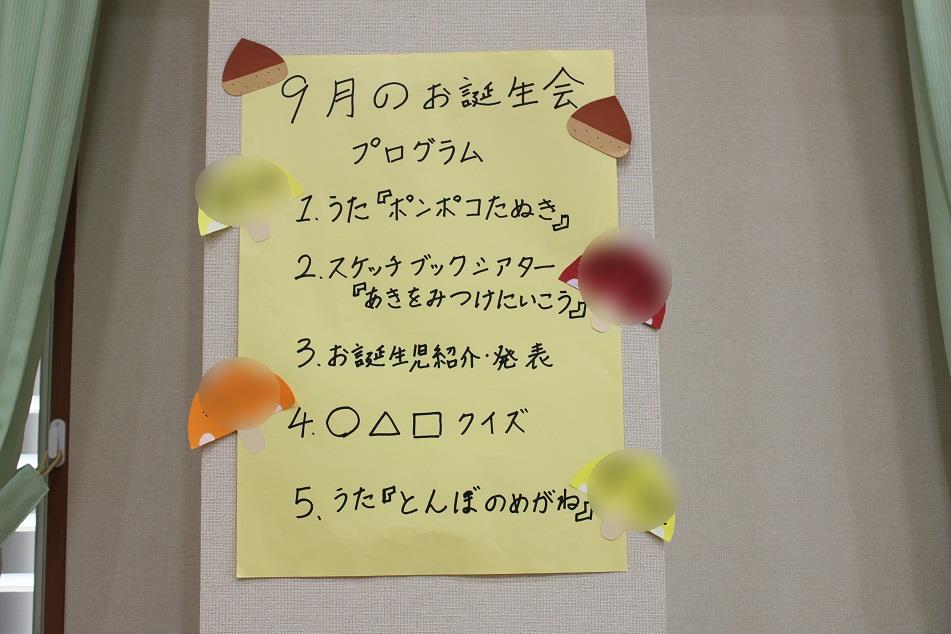 9月のお誕生会
プログラム
1.うた『ポンポコたぬき』
2.スケッチブックシアター
『あきをみつけにいこう』
3.お誕生児紹介・発表
4.○△□クイズ
5、うた『とんぼのめがね』